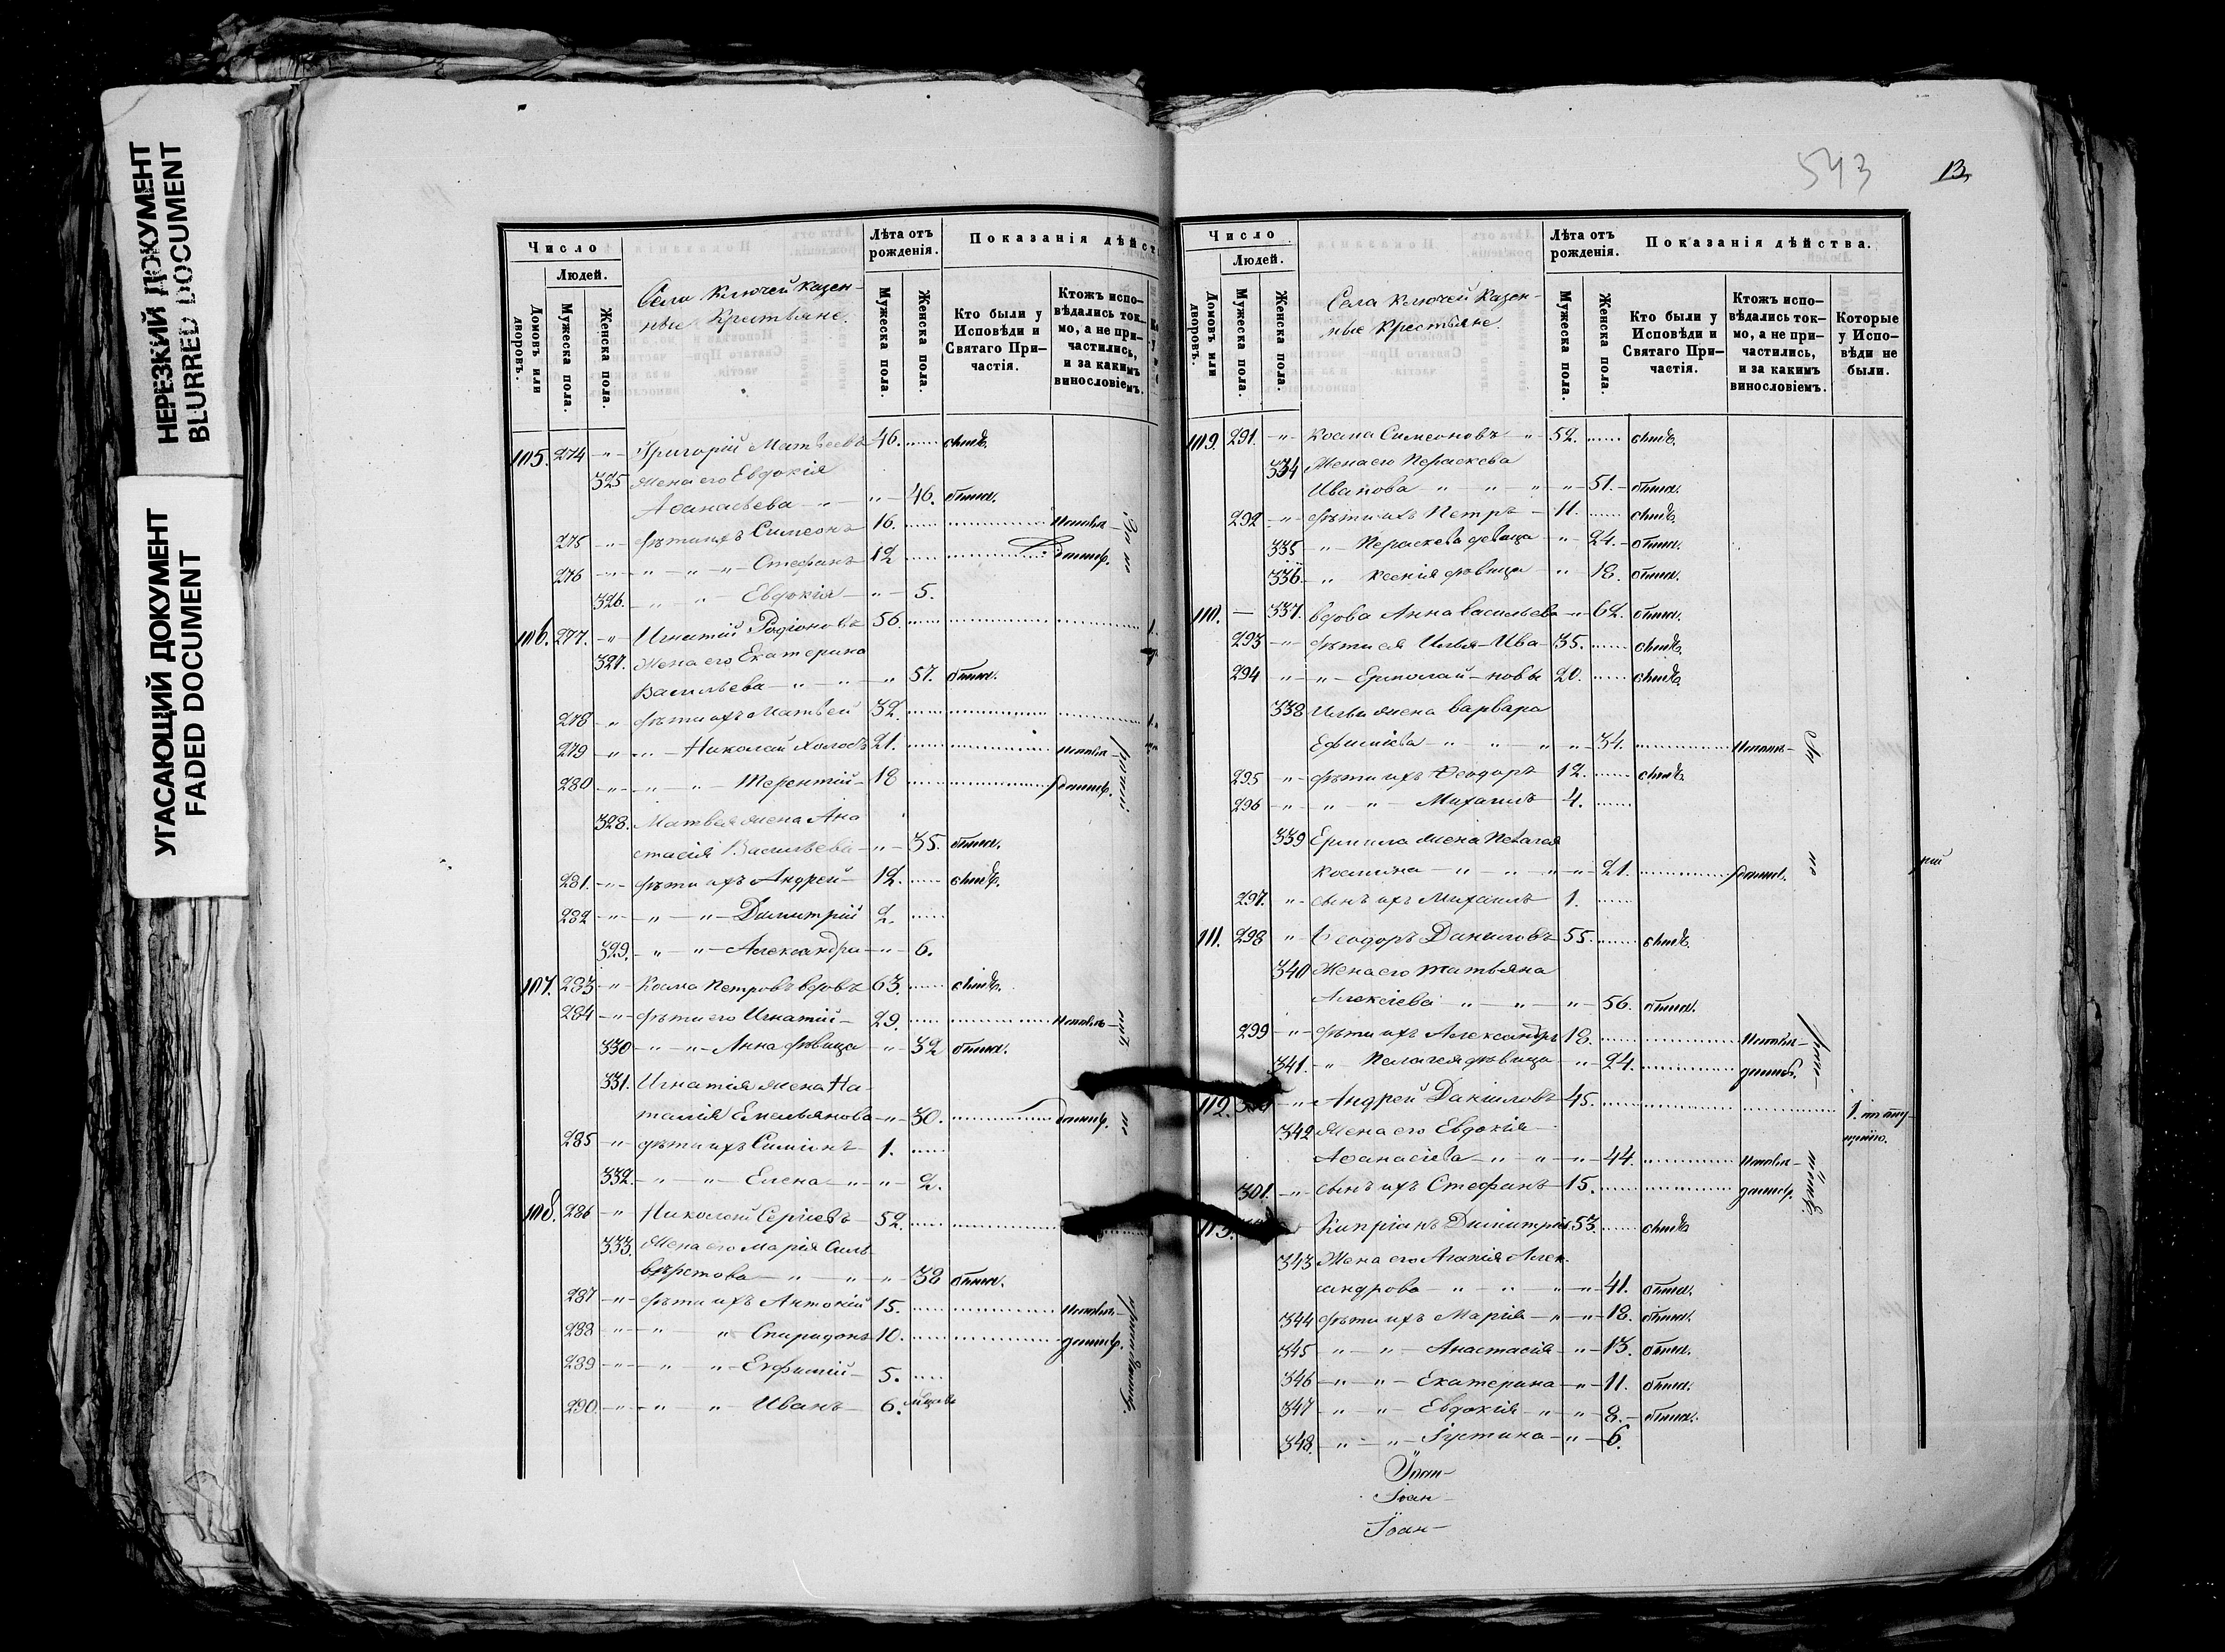 НЕРЕЗКИЙ ДОКУМЕНТ
BLURRED DOCUMENT
УГАСАЮЩИЙ ДОКУМЕНТ
FADED DOCUMENT
Число
Людей.
Домовъ или дворовъ.
Мужеска пола.
Женска пола.
Села Ключей казен-
ные Крестьяне.
Лѣта отъ рожденія.
Мужеска пола.
Женска пола.
Показанія дѣйст
Кто были у Исповѣди и Святаго При-частія.
Ктожъ испо-вѣдались ток-мо, а не при-частились, и за какимъ винословіемъ.
105. 274 -"- Григорій Матвеевъ 46.
325 Жена его Евдокія
Аѳанасьева -"- 46.
275 -"- Дѣти ихъ Симеонъ 16.
276 -"- " - " - Стефанъ 12
326. -"- " - Евдокія -"- 5.
106. 277. -"- Игнатій Родіоновъ 56.
327. Жена его Екатерина
Васильева -"- " - " 57.
278 -" дѣти ихъ Матвей 32
279 -"- " - Николай холостъ 21.
280 -"- " - Терентій - 18
328. Матвея жена Ана
стасія Васильева -"- 35.
281. -"- дѣти ихъ Андрей - 12.
282 -"- " - " - Димитрій 2.
329. -"- " - Александра -"- 6.
107. 283 -"- Косма Петровъ вдовъ 63.
284 -"- дѣти его Игнатій - 29.
330 -"- " - Анна дѣвица -"- 32
331. Игнатія жена На-
талія Емельянова -"- 30.
285 -"- дѣти ихъ Симіонъ 1.
332. -"- " - Елена -"- " - 2.
108. 286 -" Николай Сергіевъ - 52.
333. Жена его Марія Силь-
верстова -"- " - " - 38
287 -"- дѣти ихъ Антоній 15.
288 " - " " Спиридонъ 10.
289 -"- " - " - Евфимій - 5.
290 -"- " - " Иванъ - 6. мѣсяцовъ
543
13
Число
Людей.
Домовъ или дворовъ.
Мужеска пола.
Женска пола.
Села Ключей Казен-
ные Крестьяне.
Лѣта отъ рожденія.
Мужеска пола.
Женска пола.
Показанія дѣйства.
Кто были у Исповѣди и Святаго При-частія.
Ктожъ испо-вѣдались ток-мо, а не при-частились, и за какимъ винословіемъ.
Которые у Испо-вѣди не были.
109. 291. -"- Косма Симеоновъ - " 52.
334 Жена его Параскева
Иванова " - " - " - " - 51.
292 -"- дѣти ихъ Петръ - 11.
335 " - Параскева дѣвица -"- 24.
336 " Ксенія дѣвица -"- 18.
110. - 337. вдова Анна Васильева -"- 62.
293 -"- дѣти ея Илья - Ива 35.
294 -"- " - Ермолай - новы 20.
338 Ильи жена Варвара
Ефимиева -"- " - " -"- 34.
295 "- дѣти ихъ Ѳеодоръ 12.
296 -"- " - " - Михаилъ 4.
339 Ермила жена Пелагея
Космина -"- " - " -"- 21.
297. " - сынъ ихъ Михаилъ 1.
111. 298 " Ѳеодоръ Даниловъ 55.
340 Жена его Татьяна
Алексіева " - " - " - 56.
299 -"- дѣти ихъ Александръ 18.
341. " - Пелагея дѣвица -"- 24.
112. -"- Андрей Даниловъ 45. 1.
342 Жена его Евдокія -
Аѳанасіева -"- " -"- 44.
301. -"- сынъ ихъ Стефанъ 15.
113. Кипріанъ Димитріев 53.
343 Жена его Агапія Алек-
сандрова -"- " - " - " - 41.
344 дѣти ихъ Марія -"- " - 18.
345 " - " - Анастасія -"- 13.
346 -"- " - Екатерина -"- 11.
347 -"- " - Евдокія -"- " 8.
348. -"- " - Іустина -"- 6.
Іоан-
Іоан-
Іоан-